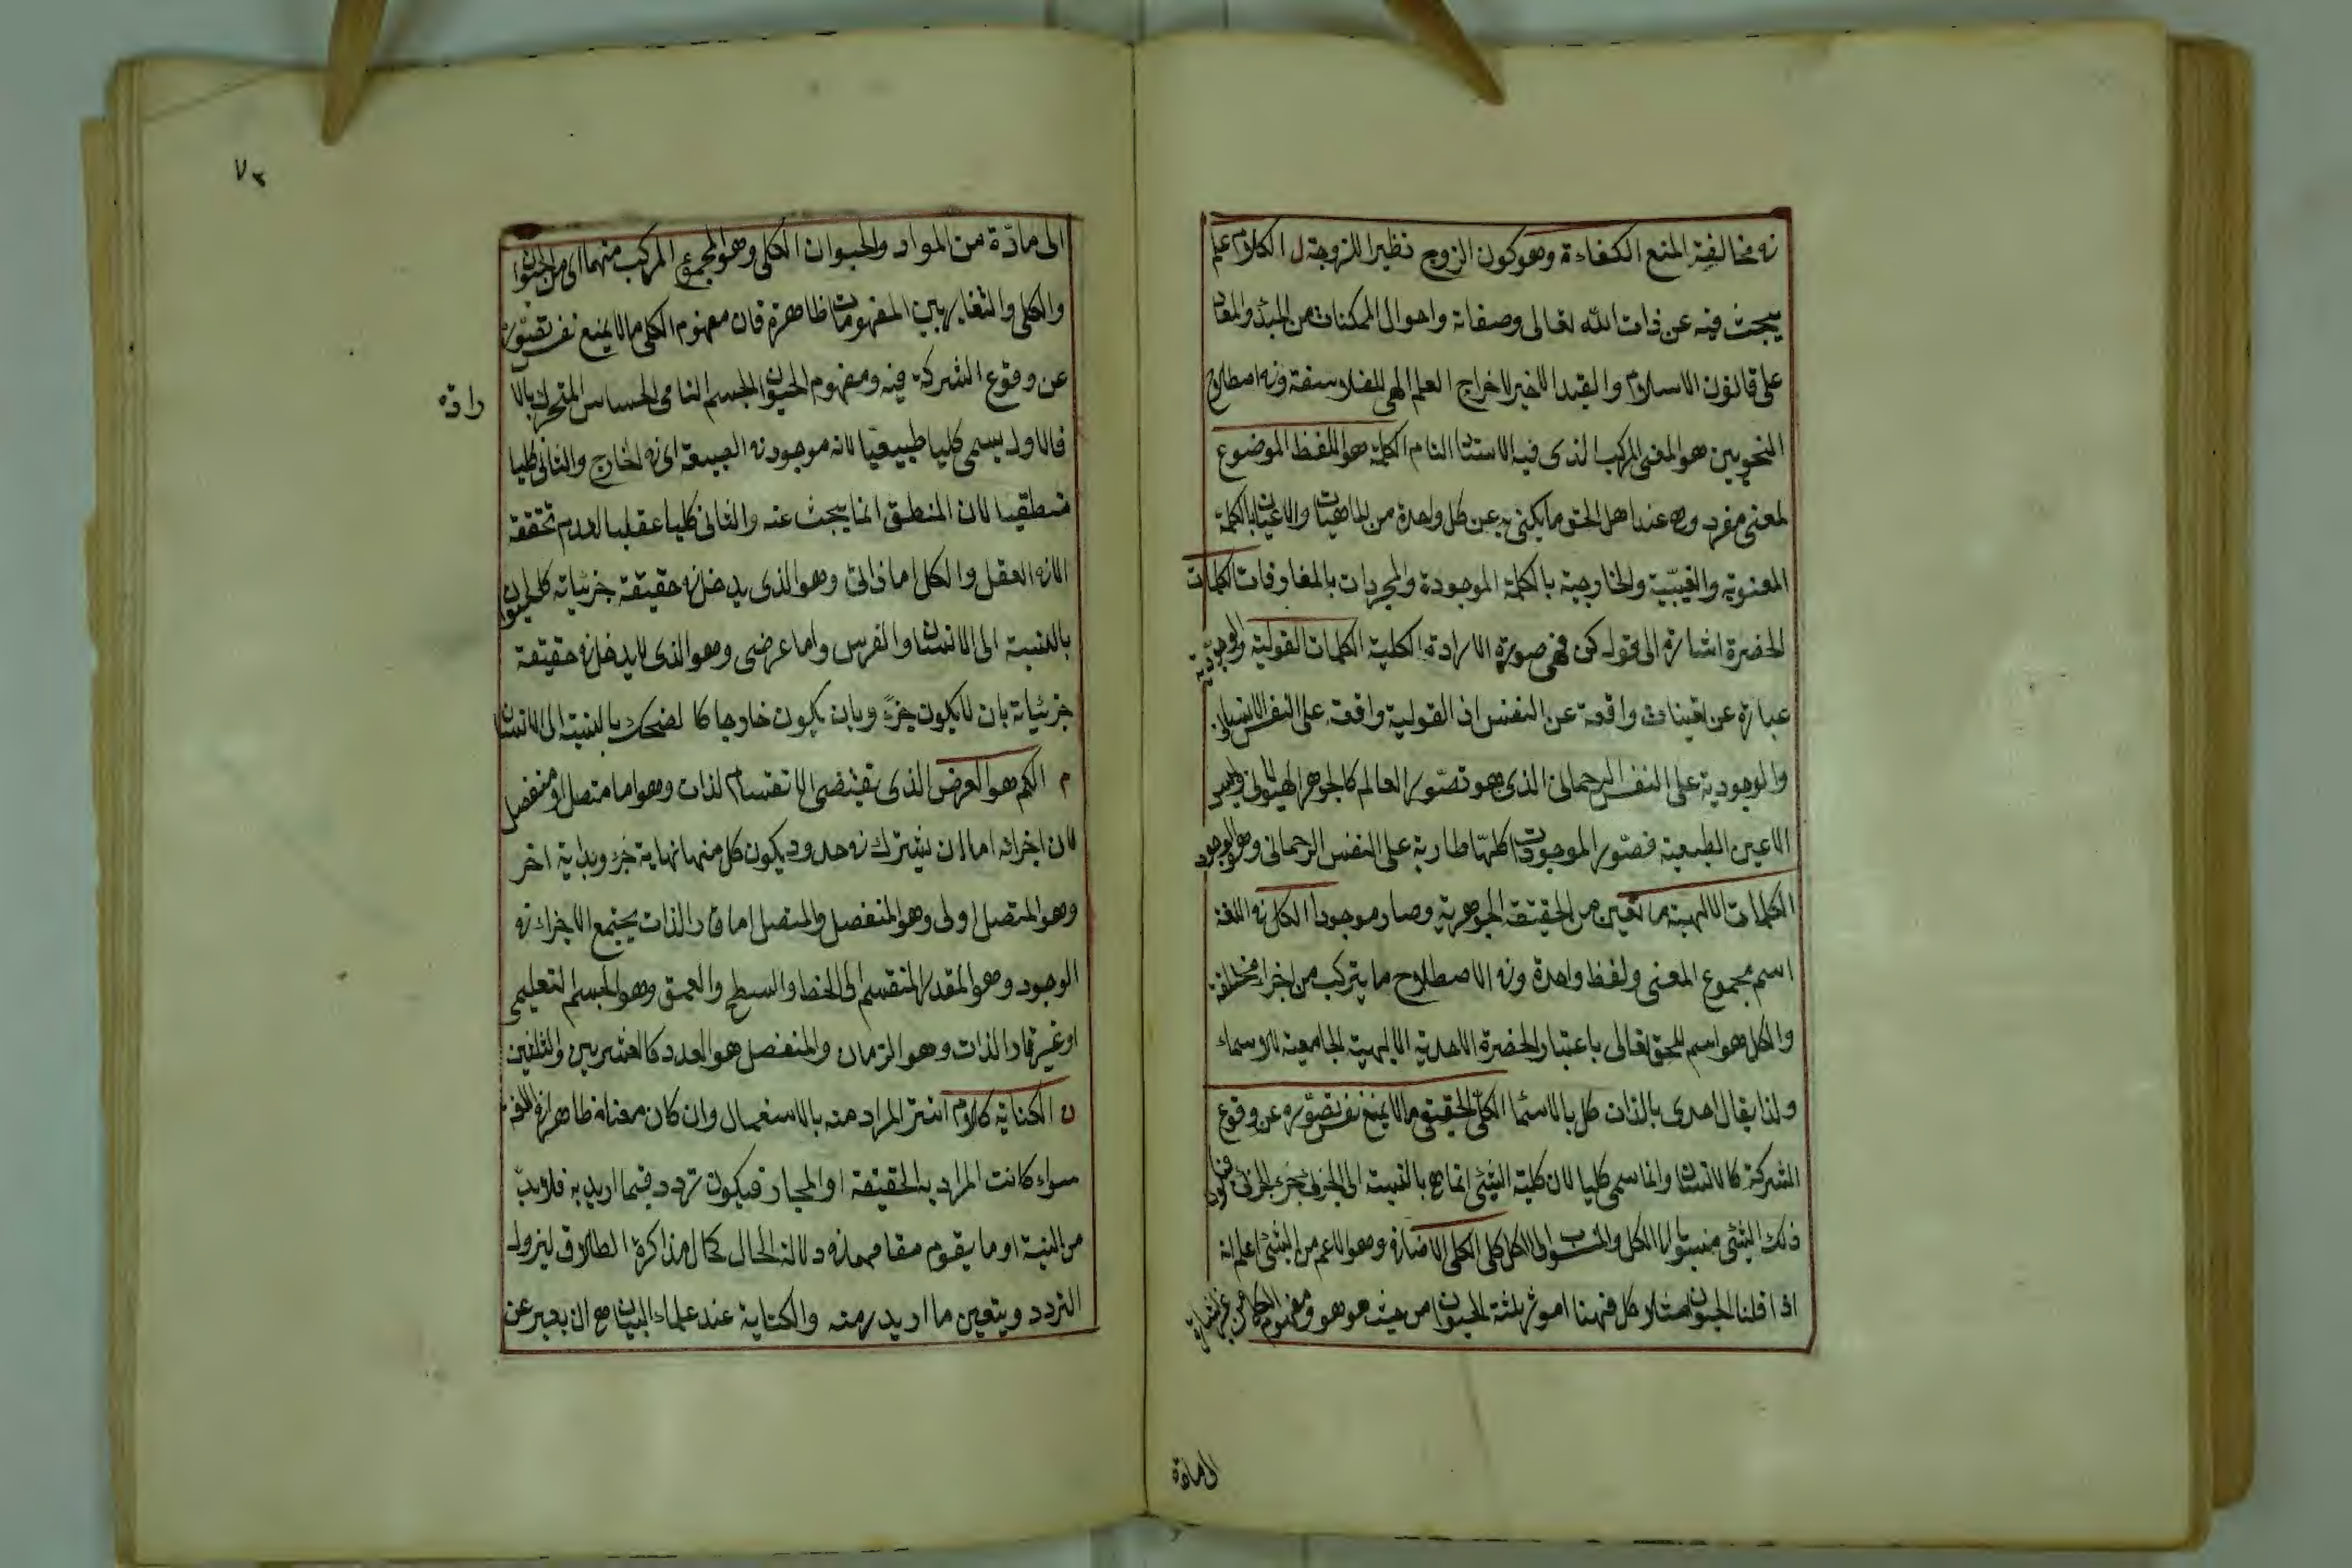 في مخالفة المنع الكفاءة وهو كون الزوج نظيرا للزوجة ل الكلام علم
يبحث فيه عن ذات الله تعالى وصفاته واحوال الممكنات من المبدٔ والمعاد
على قانون الاسلام والقيد الاخير لاخراج العلم الهى للفلاسفة وفى اصطلاح
النحويين هو المعنى المركب الذى فيه الاسناد التام الكلمة هو اللفظ الموضوع
لمعنى مفرد وهى عند اهل الحق ما يكنى به عن كل واحدة من الماهيات والاعيان بالكلمة
المعنوية والغيبية والخارجية بالكلمة الموجودة والمجردات بالمفارقات الكلمات
الحضرة اشارة الى قوله كن فهى صورة الارادة الكلية الكلمات القولية والوجودية
عبارة عن تعينات واقعة عن النفس اذ القولية واقعة على النفس الانسانى
والوجودية على النفس الرحمانى الذى هو تصور العالم كالجوهر الهيولى وليس
الا عين الطبيعية فصور الموجودات كلها طارية على النفس الرحمانى وهو الوجود
الكلمات الالهية ما تعين من الحقيقة الجوهرية وصار موجودا الكل فى اللغة
اسم مجموع المعنى ولفظ واحدة وفى الاصطلاح ما يتركب من اجزاء مختلفة
والكل هو اسم للحق تعالى باعتبار الحضرة الاحدية الالهية الجامعة للاسماء
ولذا يقال احدى بالذات كل بالاسماء الكلى الحقيقى ما لا يمنع نفس تصوره عن وقوع
الشركة كالانسان وانما سمى كليا لان كلية الشئ انما هى بالنسبة الى الجزئى جزء الجزئى فيكون
ذلك الشئ منسوبا الى الكل والمنسوب الى الكل كلى الكلى الاضافى وهو الاعم من الشئ اعلم انه
اذا قلنا الحيوان مثلا كلى فهنا امور ثلثة الحيوان من حيث هو هو ومفهوم الكلى من غير اشارة
الى مادة
٧٣
الى مادّة من المواد والحيوان الكلى وهو المجموع المركب منهما اى من الحيوان
والكلى والتغاير بين المفهومات ظاهرة فان مفهوم الكلى ما لا يمنع نفس تصوره
عن وقوع الشركة فيه ومفهوم الحيوان الجسم النامى الحساس المتحرك بالا
رادة
فالاول يسمى كليا طبيعيا لانه موجود فى الطبيعة اى فى الخارج والثانى كليا
منطقيا لان المنطق انما يبحث عنه والثانى كليا عقليا لعدم تحققه
الا فى العقل والكلى اما ذاتى وهو الذى يدخل فى حقيقة جزئياته كالحيوان
بالنسبة الى الانسان والفرس واما عرضى وهو الذى لا يدخل فى حقيقة
جزئياته بان لا يكون جزءً وبان يكون خارجا كالضحك بالنسبة الى الانسان
م الكم هو العرض الذى يقتضى الانقسام لذات وهو اما متصل او منفصل
لان اجزائه اما ان تشترك فى حدود يكون كل منها نهاية جزء وبداية اخر
وهو المتصل اولى وهو المنفصل والمتصل اما قار الذات يجتمع الاجزاء فى
الوجود وهو المقدار المنقسم الى الخط والسطح والعمق وهو الجسم التعليمى
او غير قار الذات وهو الزمان والمنفصل هو العدد كالعشرين والثلثين
ن الكناية كلام استتر المراد منه بالاستعمال وان كان معناه ظاهرا فى اللغة
سواء كانت المراد به الحقيقة او المجاز فيكون تردد فيما اريد به فلا بد
من النية او ما يقوم مقامها فى دلالة الحال كحال مذاكرة الطلاق ليزول
التردد ويتعين ما اريد منه والكناية عند علماء البيان هى ان يعبر عن